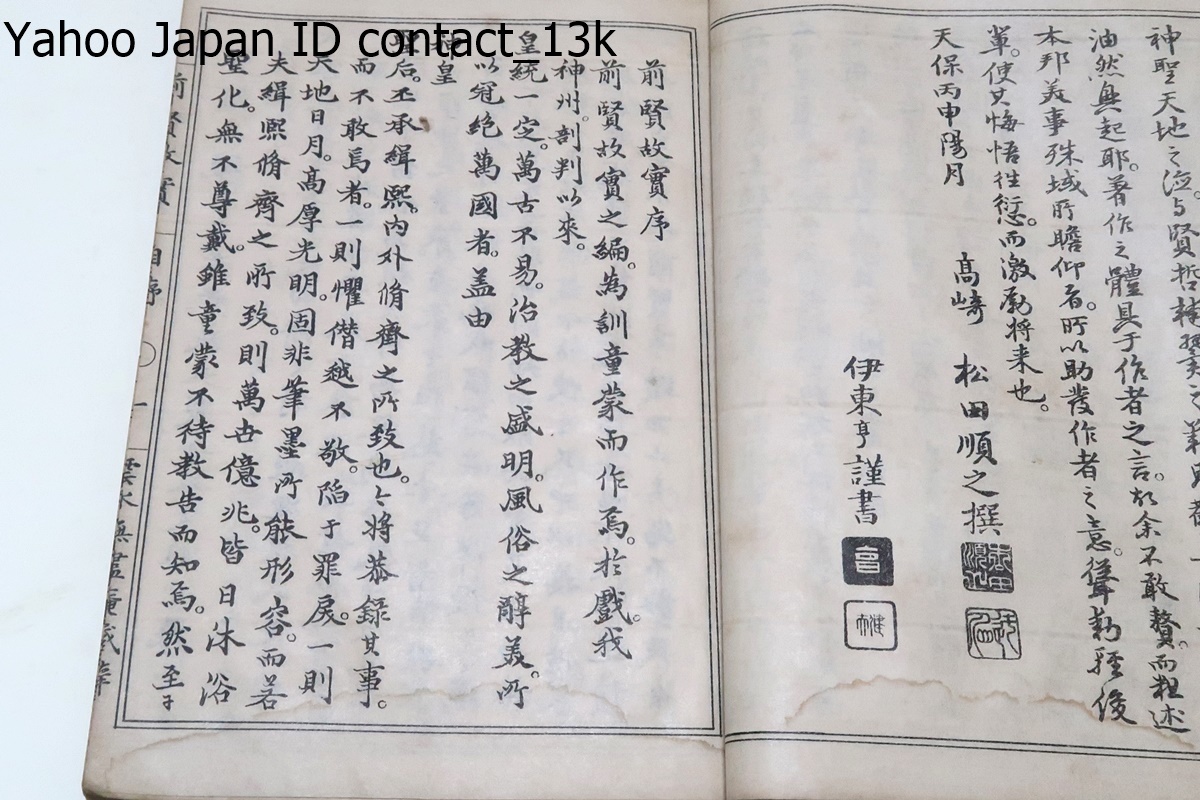 Yahoo Japan ID contact_13k
神聖天地之
油然興起耶。著作之體具于作者之言。故余不敢贅。而粗述
本邦美事殊域所瞻仰者。所以助發作者之意。
輩。使其悔悟往愆。而激勵将来也。
天保丙申陽月
高﨑 松田順之撰
伊東亨謹書
前賢故實序
前賢故實之編。為訓童蒙而作焉。於戲。我
神州。剖判以來。
皇統一定。萬古不易。治教之盛明。風俗之醇美。所
以冠絶萬國者。蓋由
神皇
聖后。丕承緝熙。内外脩齊之所致也。今将恭錄其事。
而不敢焉者。一則懼僭越不敬。陷于罪戾。一則
天地日月。高厚光明。固非筆墨所能形容。而若
夫緝熙脩齊之所致。則萬世億兆。皆日沐浴
聖化。無不尊戴。雖童蒙不待教告而知焉。然至于
前賢故實 自序